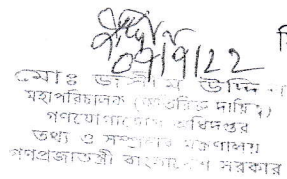 ০৭/৭/22
মোঃ জসীম উদ্দিন
মহাপরিচালক (অতিরিক্ত দায়িত্ব)
গণযোগাযোগ অধিদপ্তর
তথ্য ও সম্প্রচার মন্ত্রণালয়
গণপ্রজাতন্ত্রী বাংলাদেশ সরকার